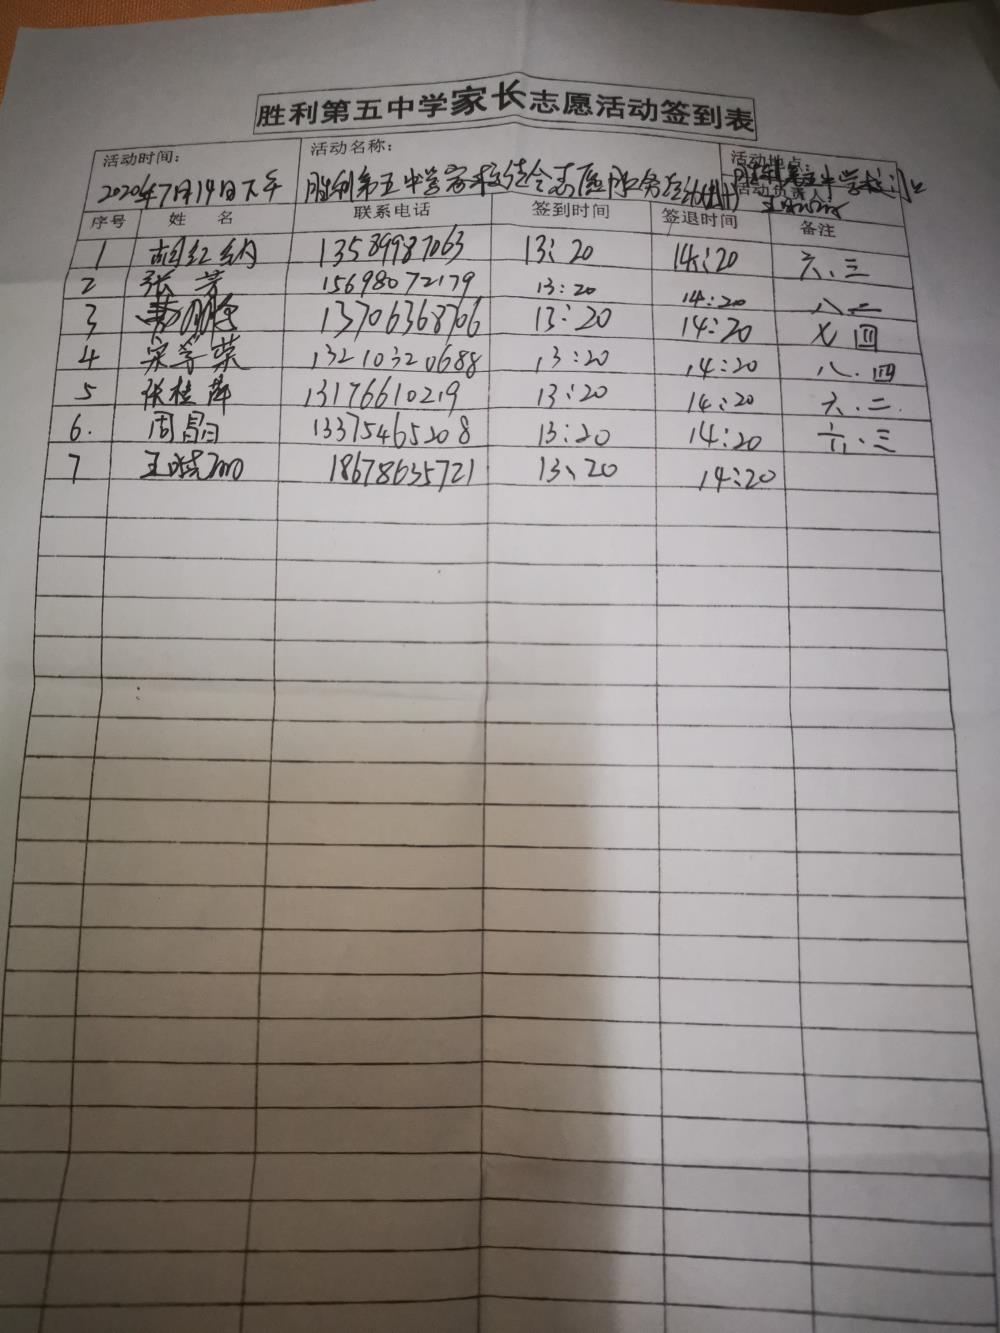 胜利第五中学家长志愿活动签到表
活动时间： 活动名称： 活动地点：
2020年7月14日下午 胜利第五中学家校 志愿服务活动 胜利第五中学校门口
活动负责人
序号 姓 名 联系电话 签到时间 签退时间 备注
1 胡红纳 13589987063 13:20 14:20 六、三
2 张芳 15698072179 13:20 14:20 八二
3 13706368706 13:20 14:20 七四
4 宋等荣 13210320688 13:20 14:20 八.四
5 张桂萍 13176610219 13:20 14:20 六、二.
6. 周昌日 13375465208 13:20 14:20 六、三
7 王晓 18678635721 13、20 14:20